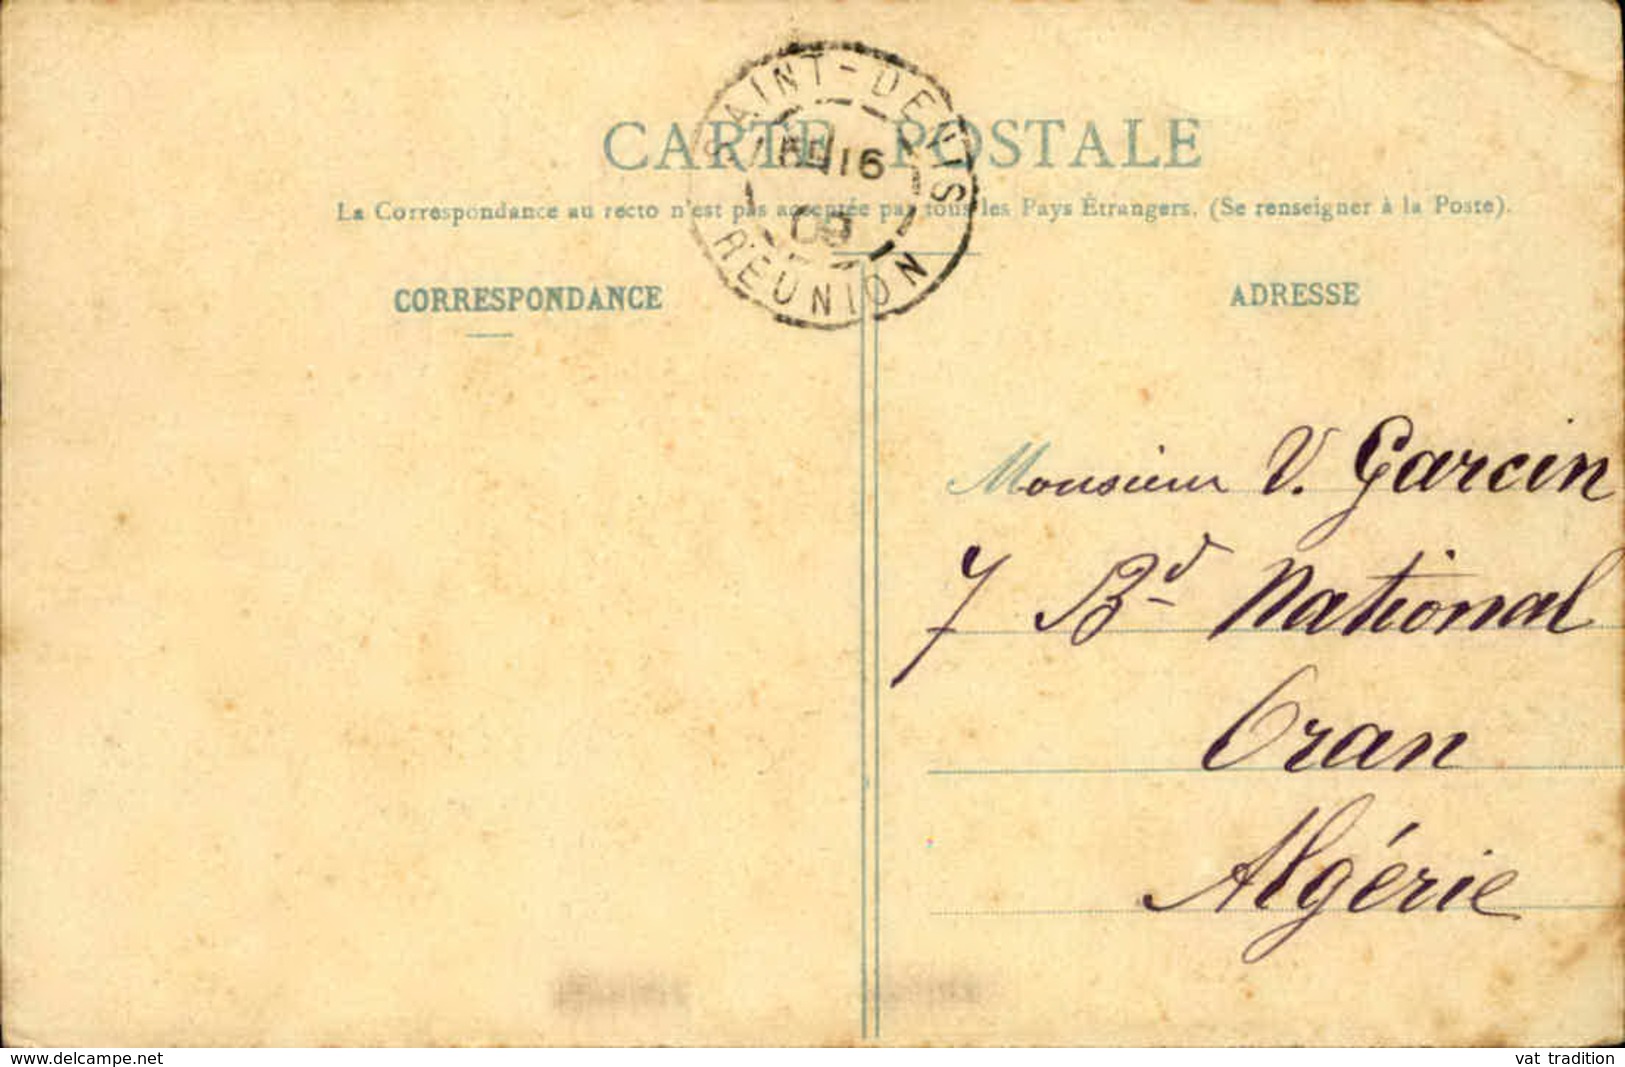 SAINT-DENIS
16
RÉUNION
CARTE POSTALE
La Correspondance au recto n'est pas acceptée par tous les Pays Étrangers. (Se renseigner à la Poste).
CORRESPONDANCE
ADRESSE
Monsieur V. Garcin
7 Bd National
Oran
Algérie
www.delcampe.net
vat tradition